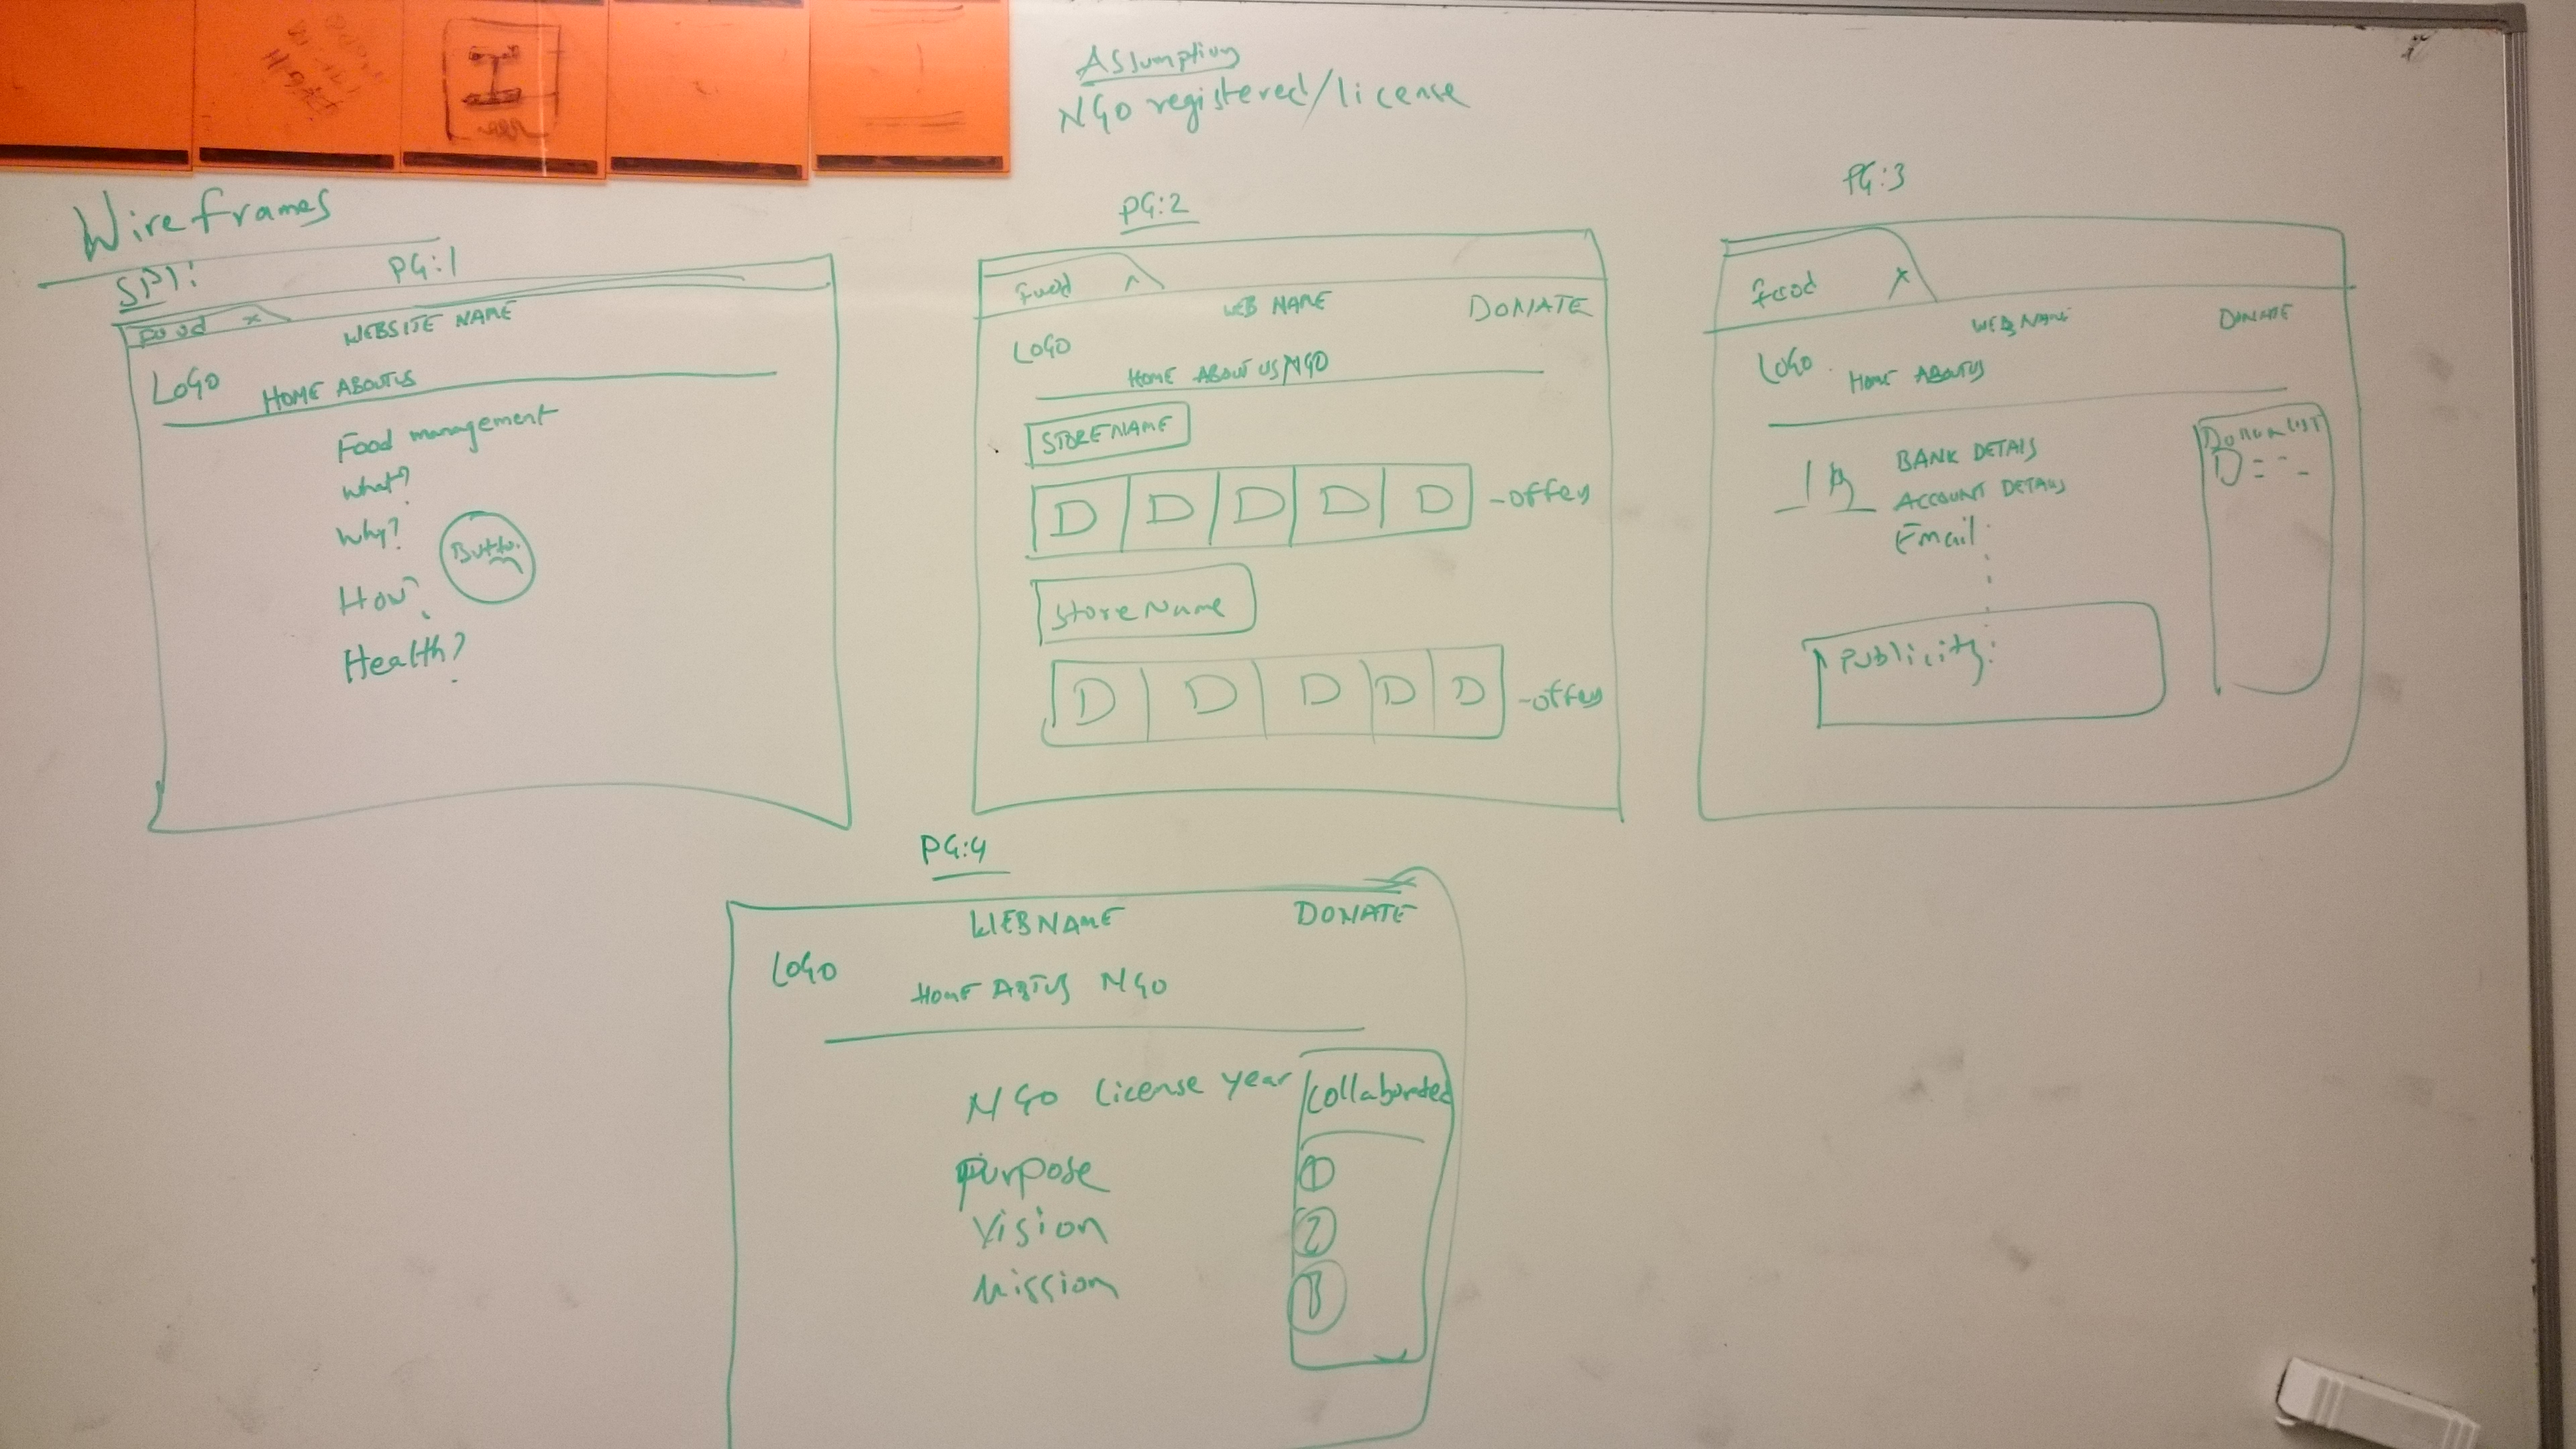 Assumption
NGO registered/license
Wireframes
SP1:
PG:1
Food x
WEBSITE NAME
LOGO
HOME ABOUTUS
Food management
What?
Why?
Button
How?
Health?
PG:2
food
WEB NAME
DONATE
LOGO
HOME ABOUT US NGO
STORENAME
D D D D D -offers
StoreName
D D D D D -offers
PG:3
food x
WEB NAME
DONATE
LOGO
HOME ABOUTUS
BANK DETAILS
ACCOUNT DETAILS
Email:
LIST
Publicity:
PG:4
WEBNAME
DONATE
LOGO
HOME ABTUS NGO
NGO License year
Collaborated
Purpose
Vision
Mission
1
2
3